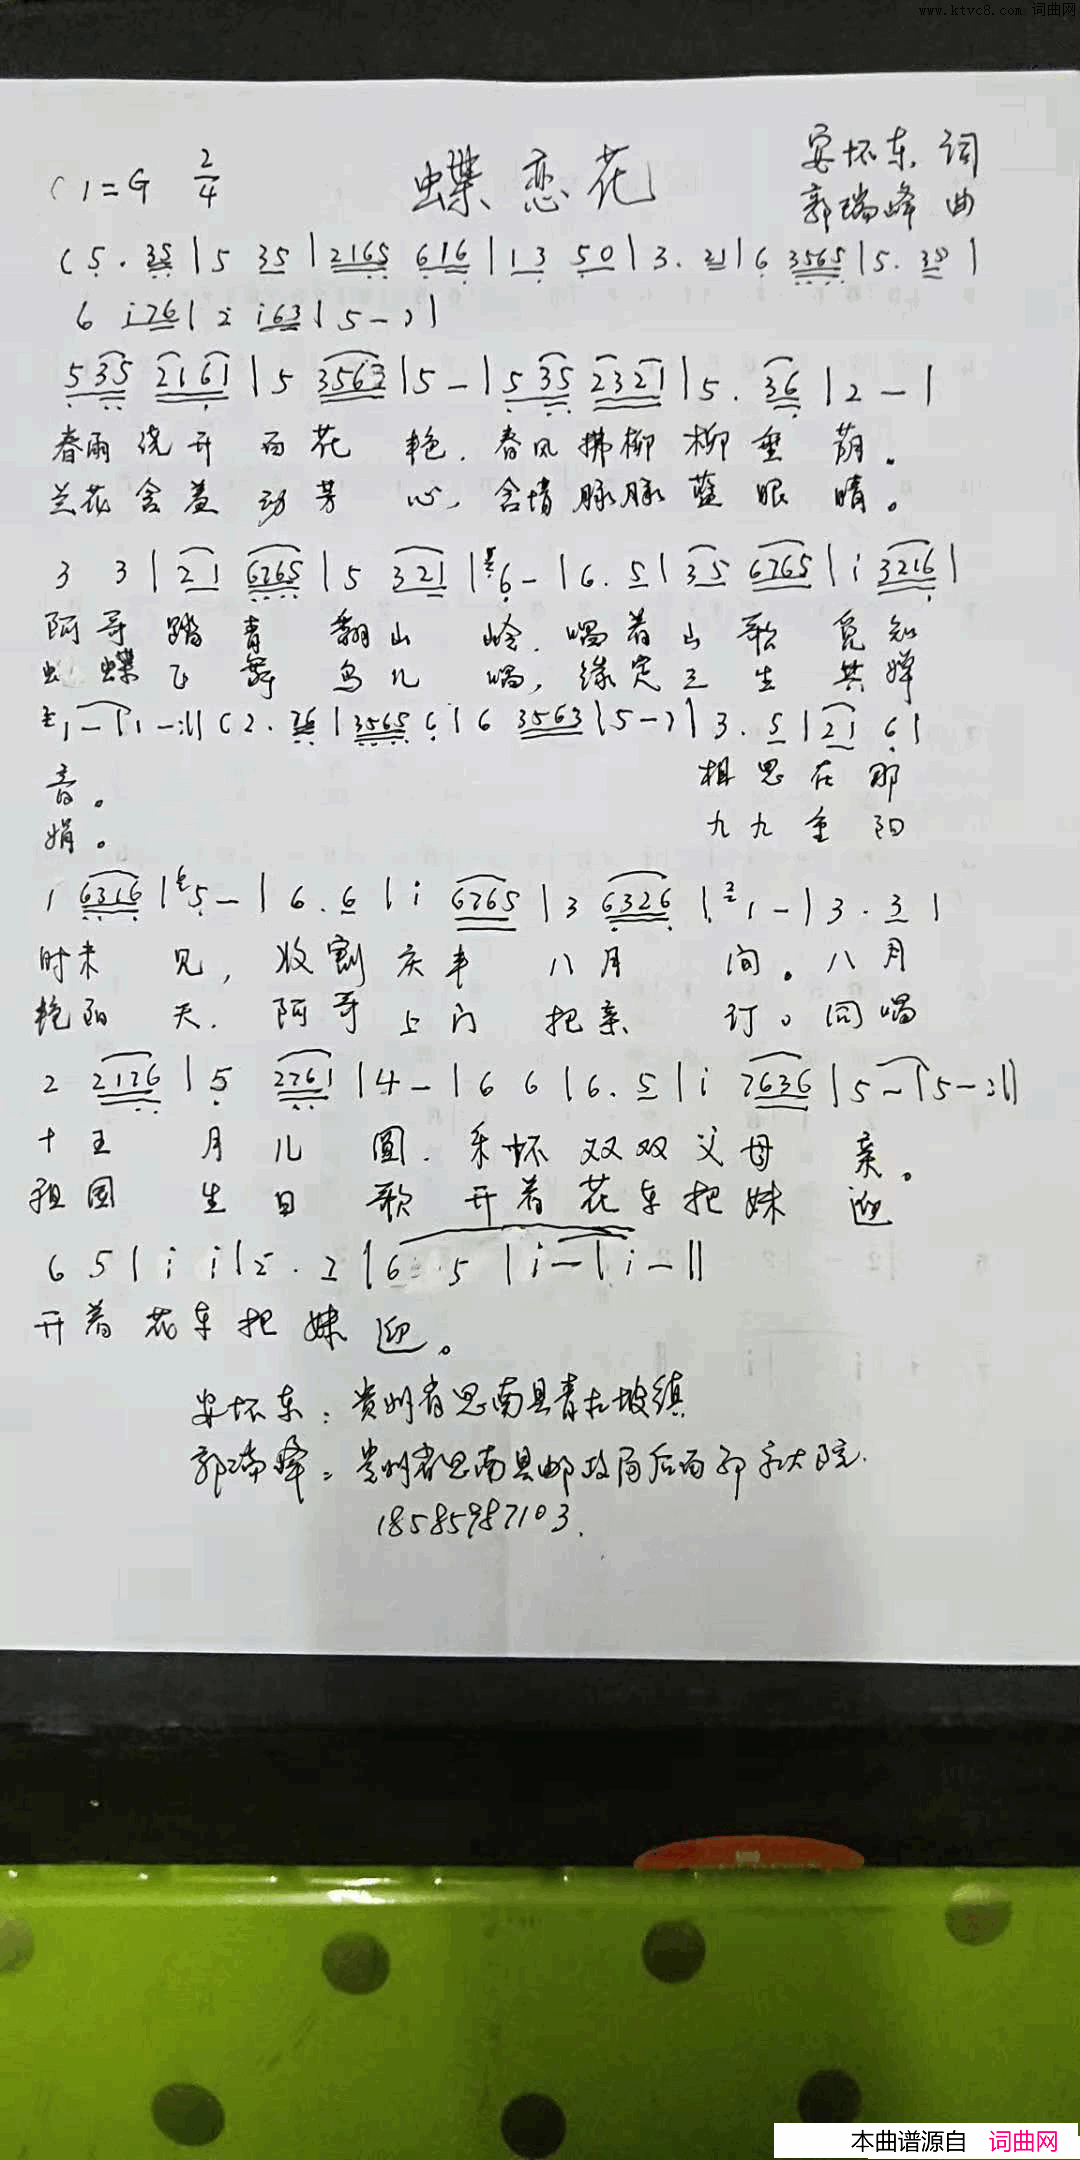 www.ktvc8.com 词曲网
1=G 2/4 蝶恋花 安怀东 词
郭瑞峰 曲
(5. 35|5 35|2165 616|13 50|3. 21|6 3565|5. 35|
6 i76|2 i63|5-)|
535 2161|5 3563|5-|535 2321|5. 36|2-|
春雨绕开百花艳.春风拂柳柳垂荫。
兰花含羞动芳心,含情脉脉蓝眼睛。
3 3|21 6765|5 321|6-|6. 5|35 6765|i 3216|
阿哥踏青翻山岭.唱着山歌觅知
蝴蝶飞舞鸟儿唱,缘定三生共婵
1-|1-:||(2. 76|3565 6|6 3563|5-)|3. 5|21 6|
音。 相思在那
娟。 九九重阳
1 6316|5-|6. 6|i 6765|3 6326|1-|3. 3|
时未见,收割庆丰八月间。八月
艳阳天.阿哥上门把亲订。同唱
2 2176|5 2761|4-|6 6|6. 5|i 7636|5-|5-:||
十五月儿圆.采怀双双父母亲。
祖国生日歌开着花车把妹迎
6 5|i i|2. 2|6 5|i-|i-||
开着花车把妹迎。
安怀东:贵州省思南县青杠坡镇
郭瑞峰:贵州省思南县邮政局后面大院.
18585987103.
本曲谱源自 词曲网